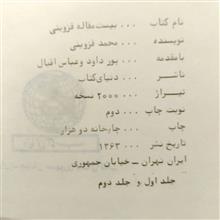 نام کتاب ... بیست مقاله قزوینی
نویسنده ... محمد قزوینی
بامقدمه ... پور داود وعباس اقبال
ناشر ... دنیای کتاب
تیراژ ... ۲۰۰۰ نسخه
نوبت چاپ ... دوم
چاپ ... چاپخانه دو هزار
تاریخ نشر ... ۱۳۶۳
ایران تهران ــ خیابان جمهوری
جلد اول و جلد دوم